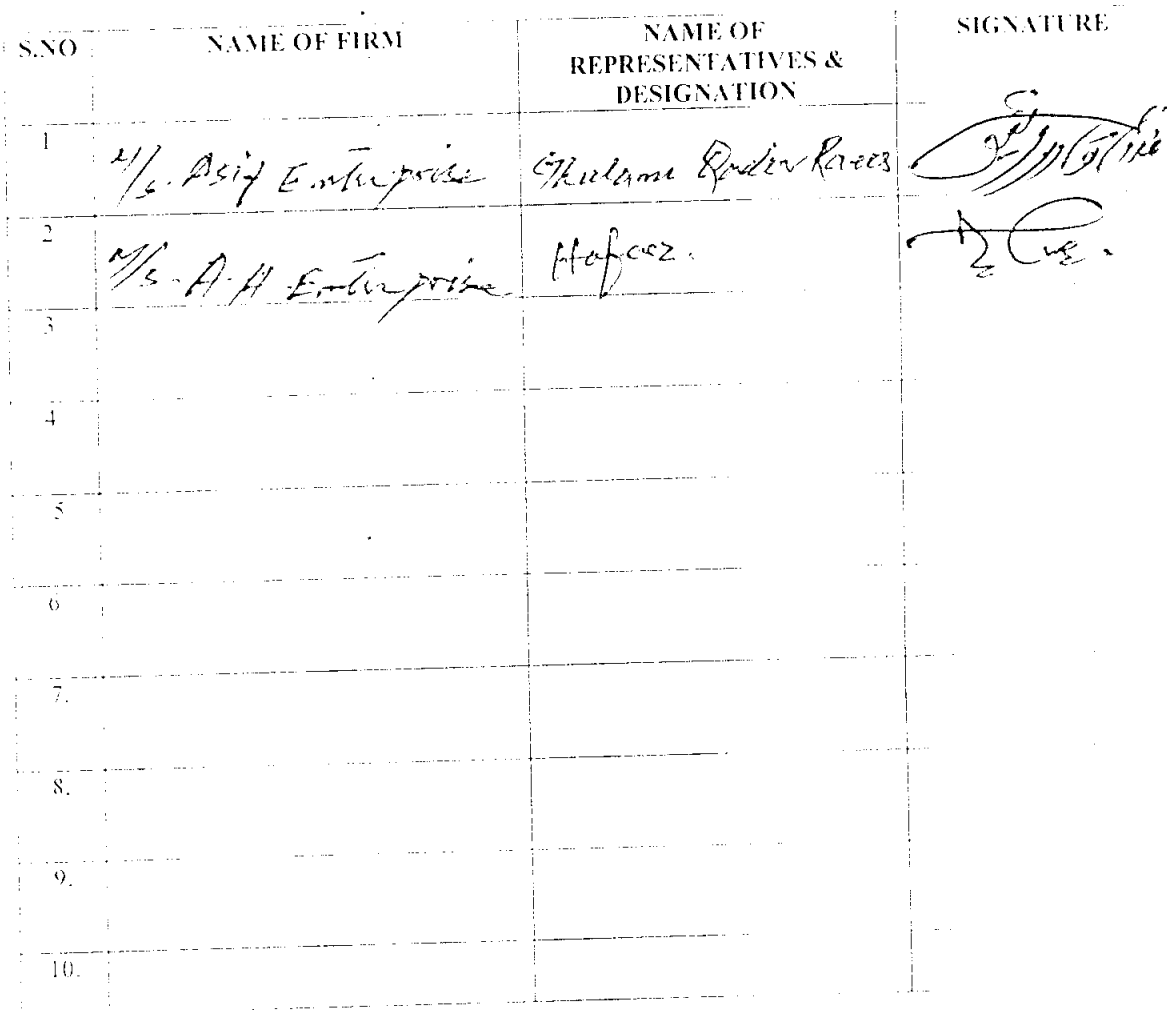 S.NO NAME OF FIRM NAME OF REPRESENTATIVES & DESIGNATION SIGNATURE
1 M/s. Asif Enterprise Ghulam Qadir Raees
2 M/s. A.H Enterprise Hafeez.
3
4
5
6
7.
8.
9.
10.